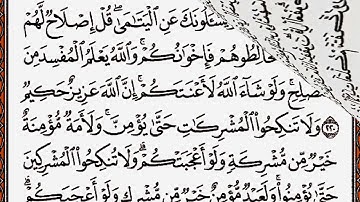 يسئلونك عن اليتامى قل إصلاح لهم
خالطوهم فإخوانكم والله يعلم المفسد من
مصلح ولو شاء الله لأعنتكم إن الله عزيز حكيم
٢٢٠ ولا تنكحوا المشركات حتى يؤمن ولأمة مؤمنة
خير من مشركة ولو أعجبتكم ولا تنكحوا المشركين
حتى يؤمنوا ولعبد مؤمن خير من مشرك ولو أعجبكم